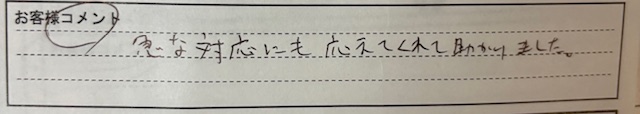 お客様コメント
急な対応にも応えてくれて助かりました。